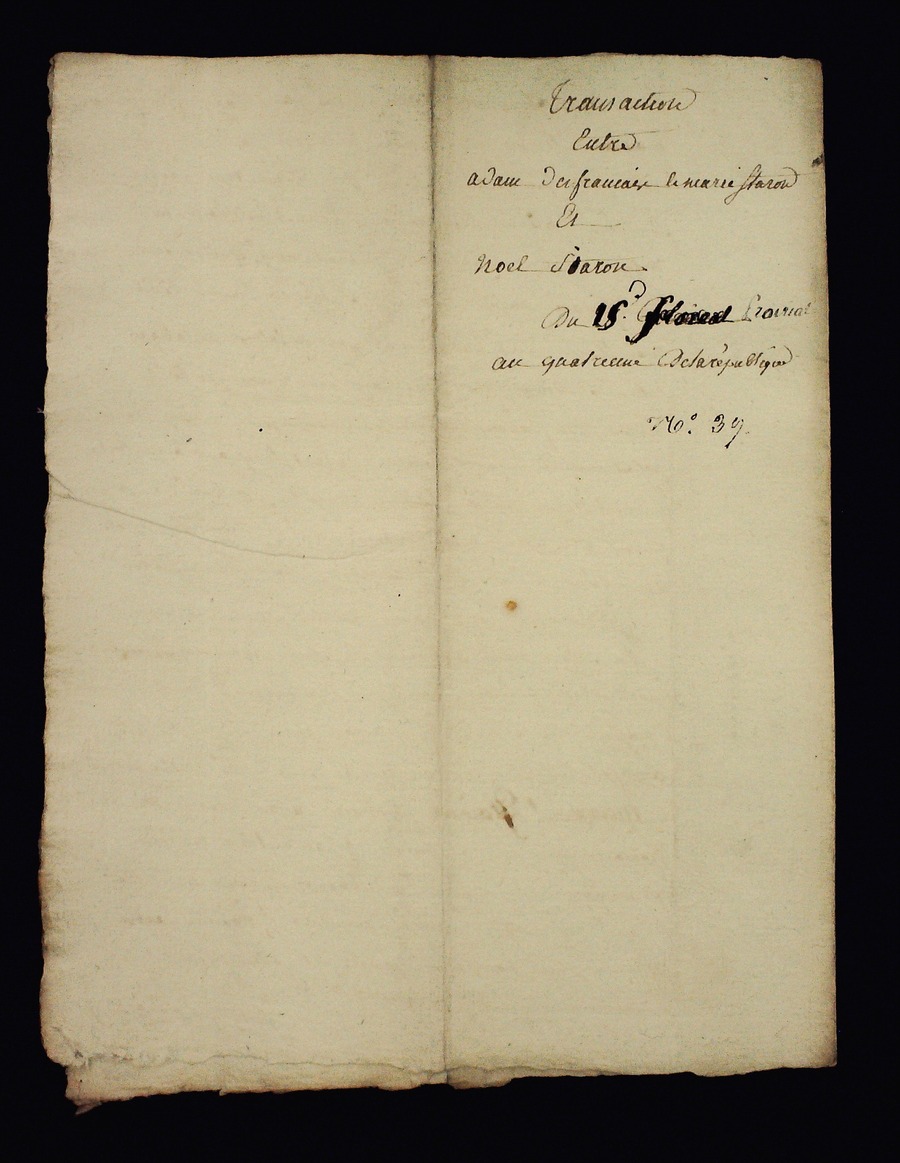 Transaction
Entre
adam Desfrancaix & marie Staron
Et
Noel Staron
Du 15.
an quatrieme De la republique
No. 39.